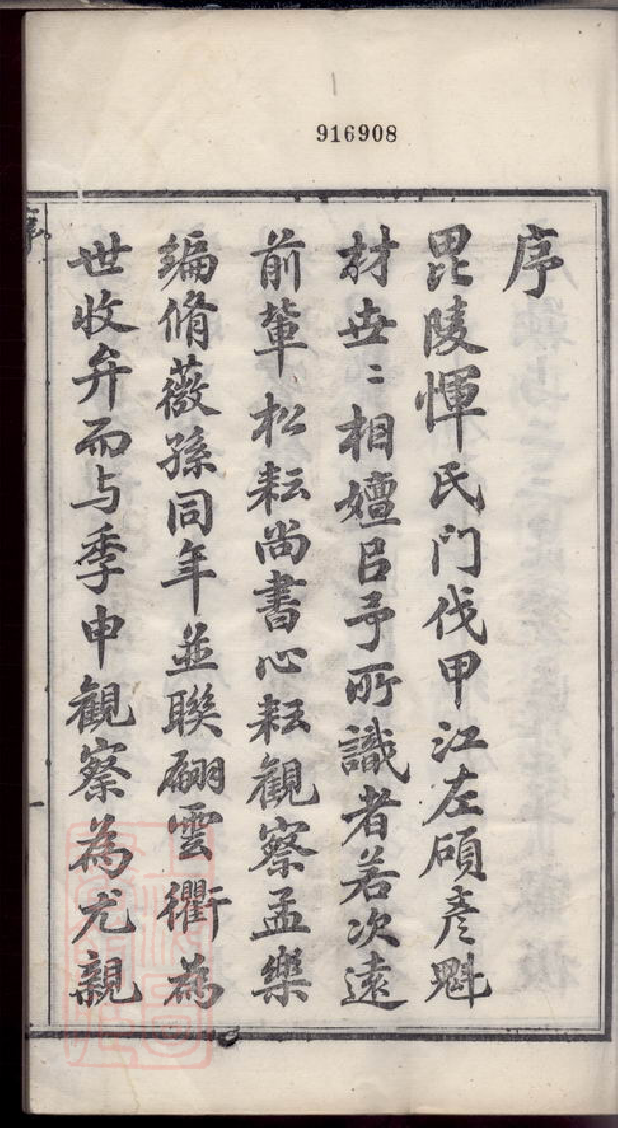 916908
序
毘陵惲氏門伐甲江左碩彥魁
材世〻相嬗㠯予所識者若次遠
前輩松耘尚書心耘觀察孟樂
編脩薇孫同年並聯翩雲衢為
世收弁而与季申觀察為尤親
序